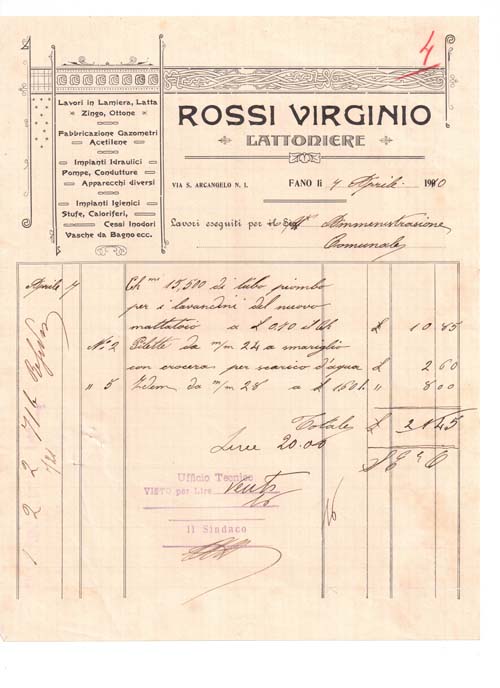 4
Lavori in Lamiera, Latta
Zingo, Ottone
Pabbricazione Gazometri
Acetilene
Impianti Idraulici
Pompe, Condutture
Apparecchi diversi
Impianti Igienici
Stufe, Caloriferi,
Cessi Inodori
Vasche da Bagno ecc.
ROSSI VIRGINIO
LATTONIERE
VIA S. ARCANGELO N. 1.
FANO li 7 Aprile 1910
Lavori eseguiti per Amministrazione
Comunale
Aprile 7
15,500 di tubo piombo
per i lavandini del nuovo
mattatoio a £ 0,70 £ 10.85
No 2 Pilette da m/m 24 a smeriglio
con crocera per scarico d'acqua £ 2 60
" 5 Idem da m/m 28 a £ 1.60 " 8 00
Totale £ 21.45
Lire 20.00
Ufficio Tecnico
VISTO per Lire venti
Il Sindaco